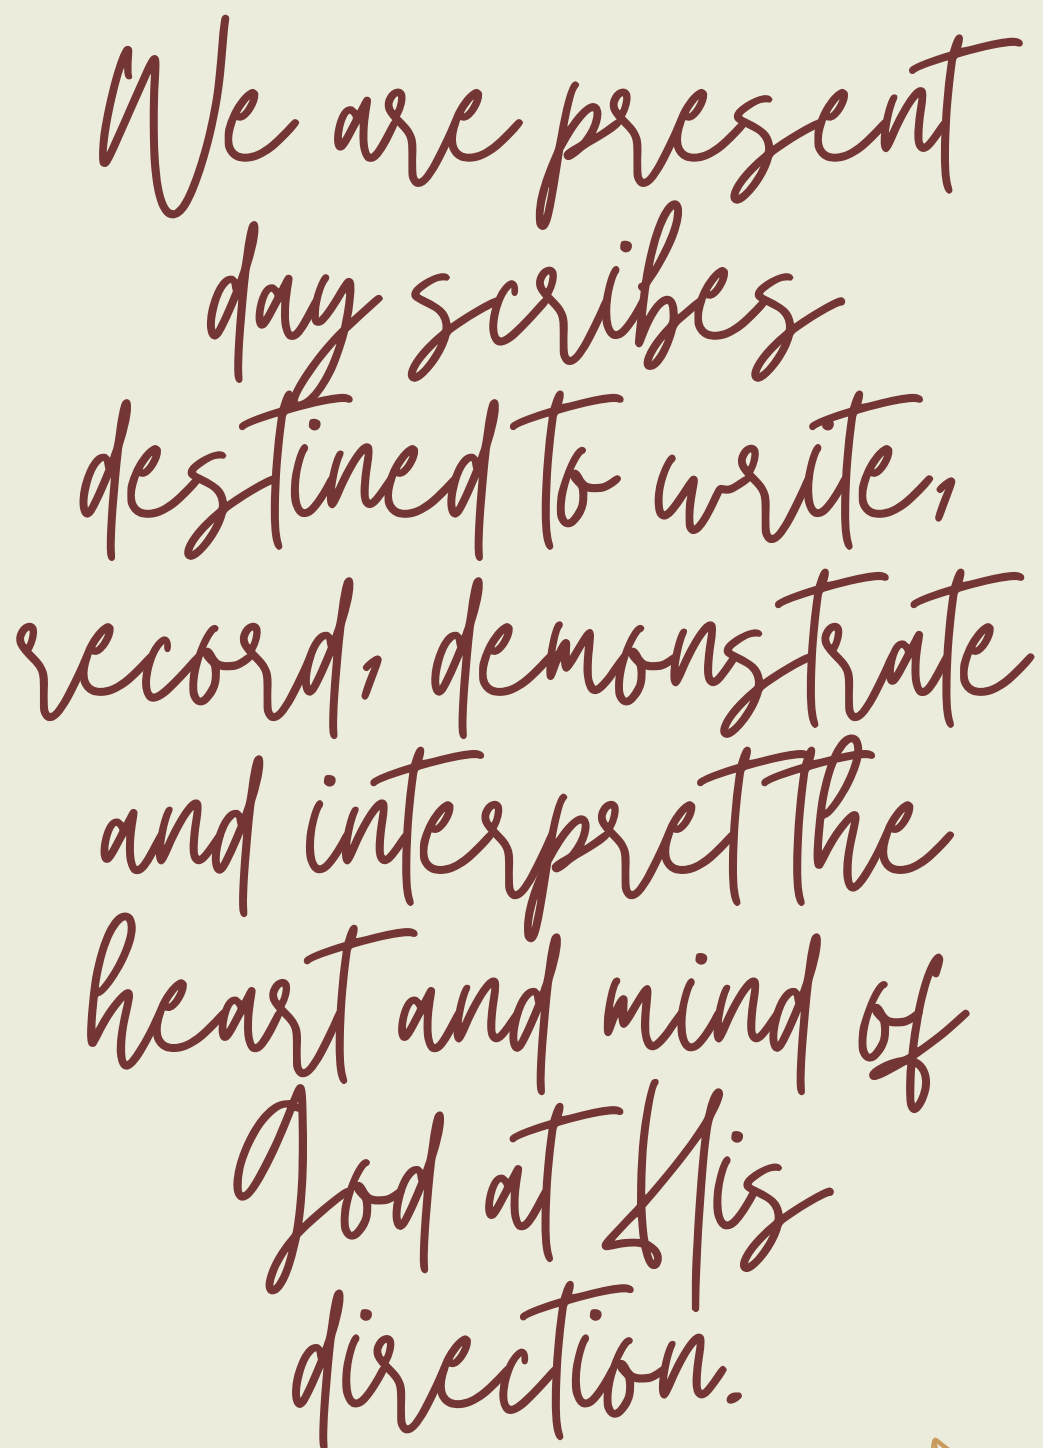 We are present
day scribes
destined to write,
record, demonstrate
and interpret the
heart and mind of
God at His
direction.